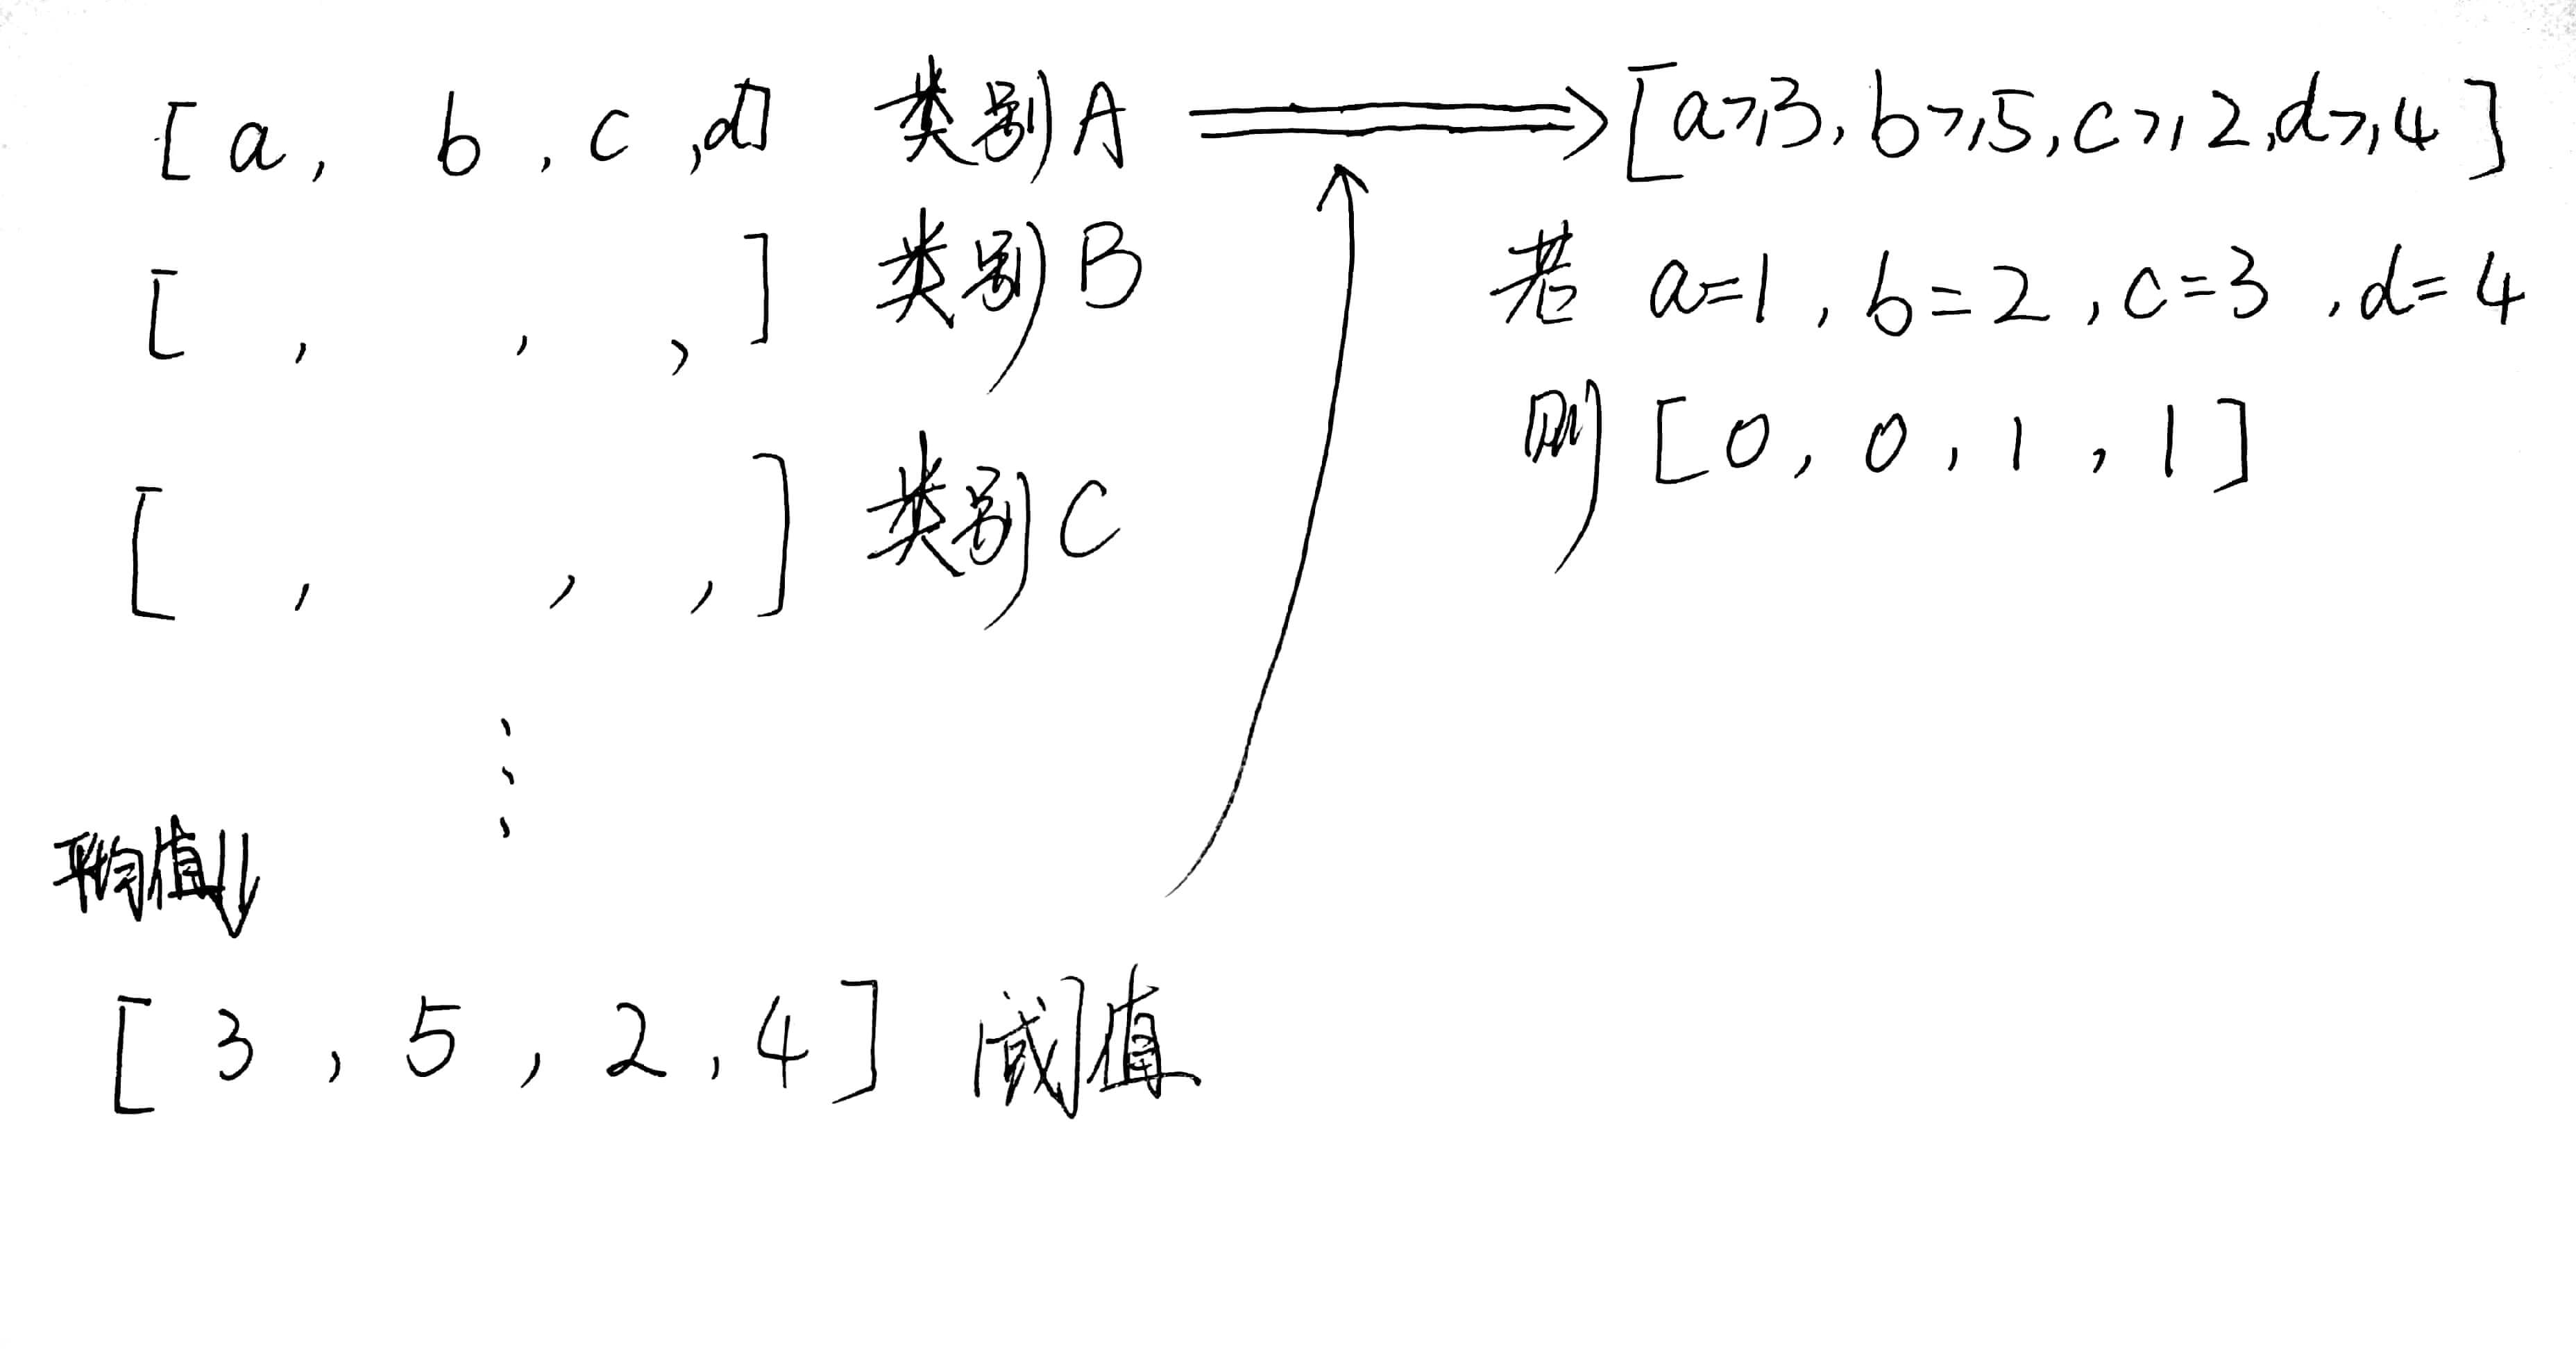 [a, b, c, d] 类别A ⟹ [a≥3, b≥5, c≥2, d≥4]
[ , , , ] 类别B
若 a=1, b=2, c=3, d=4
[ , , , ] 类别C
则 [0, 0, 1, 1]
⋮
平均值⇓
[3, 5, 2, 4] 阈值